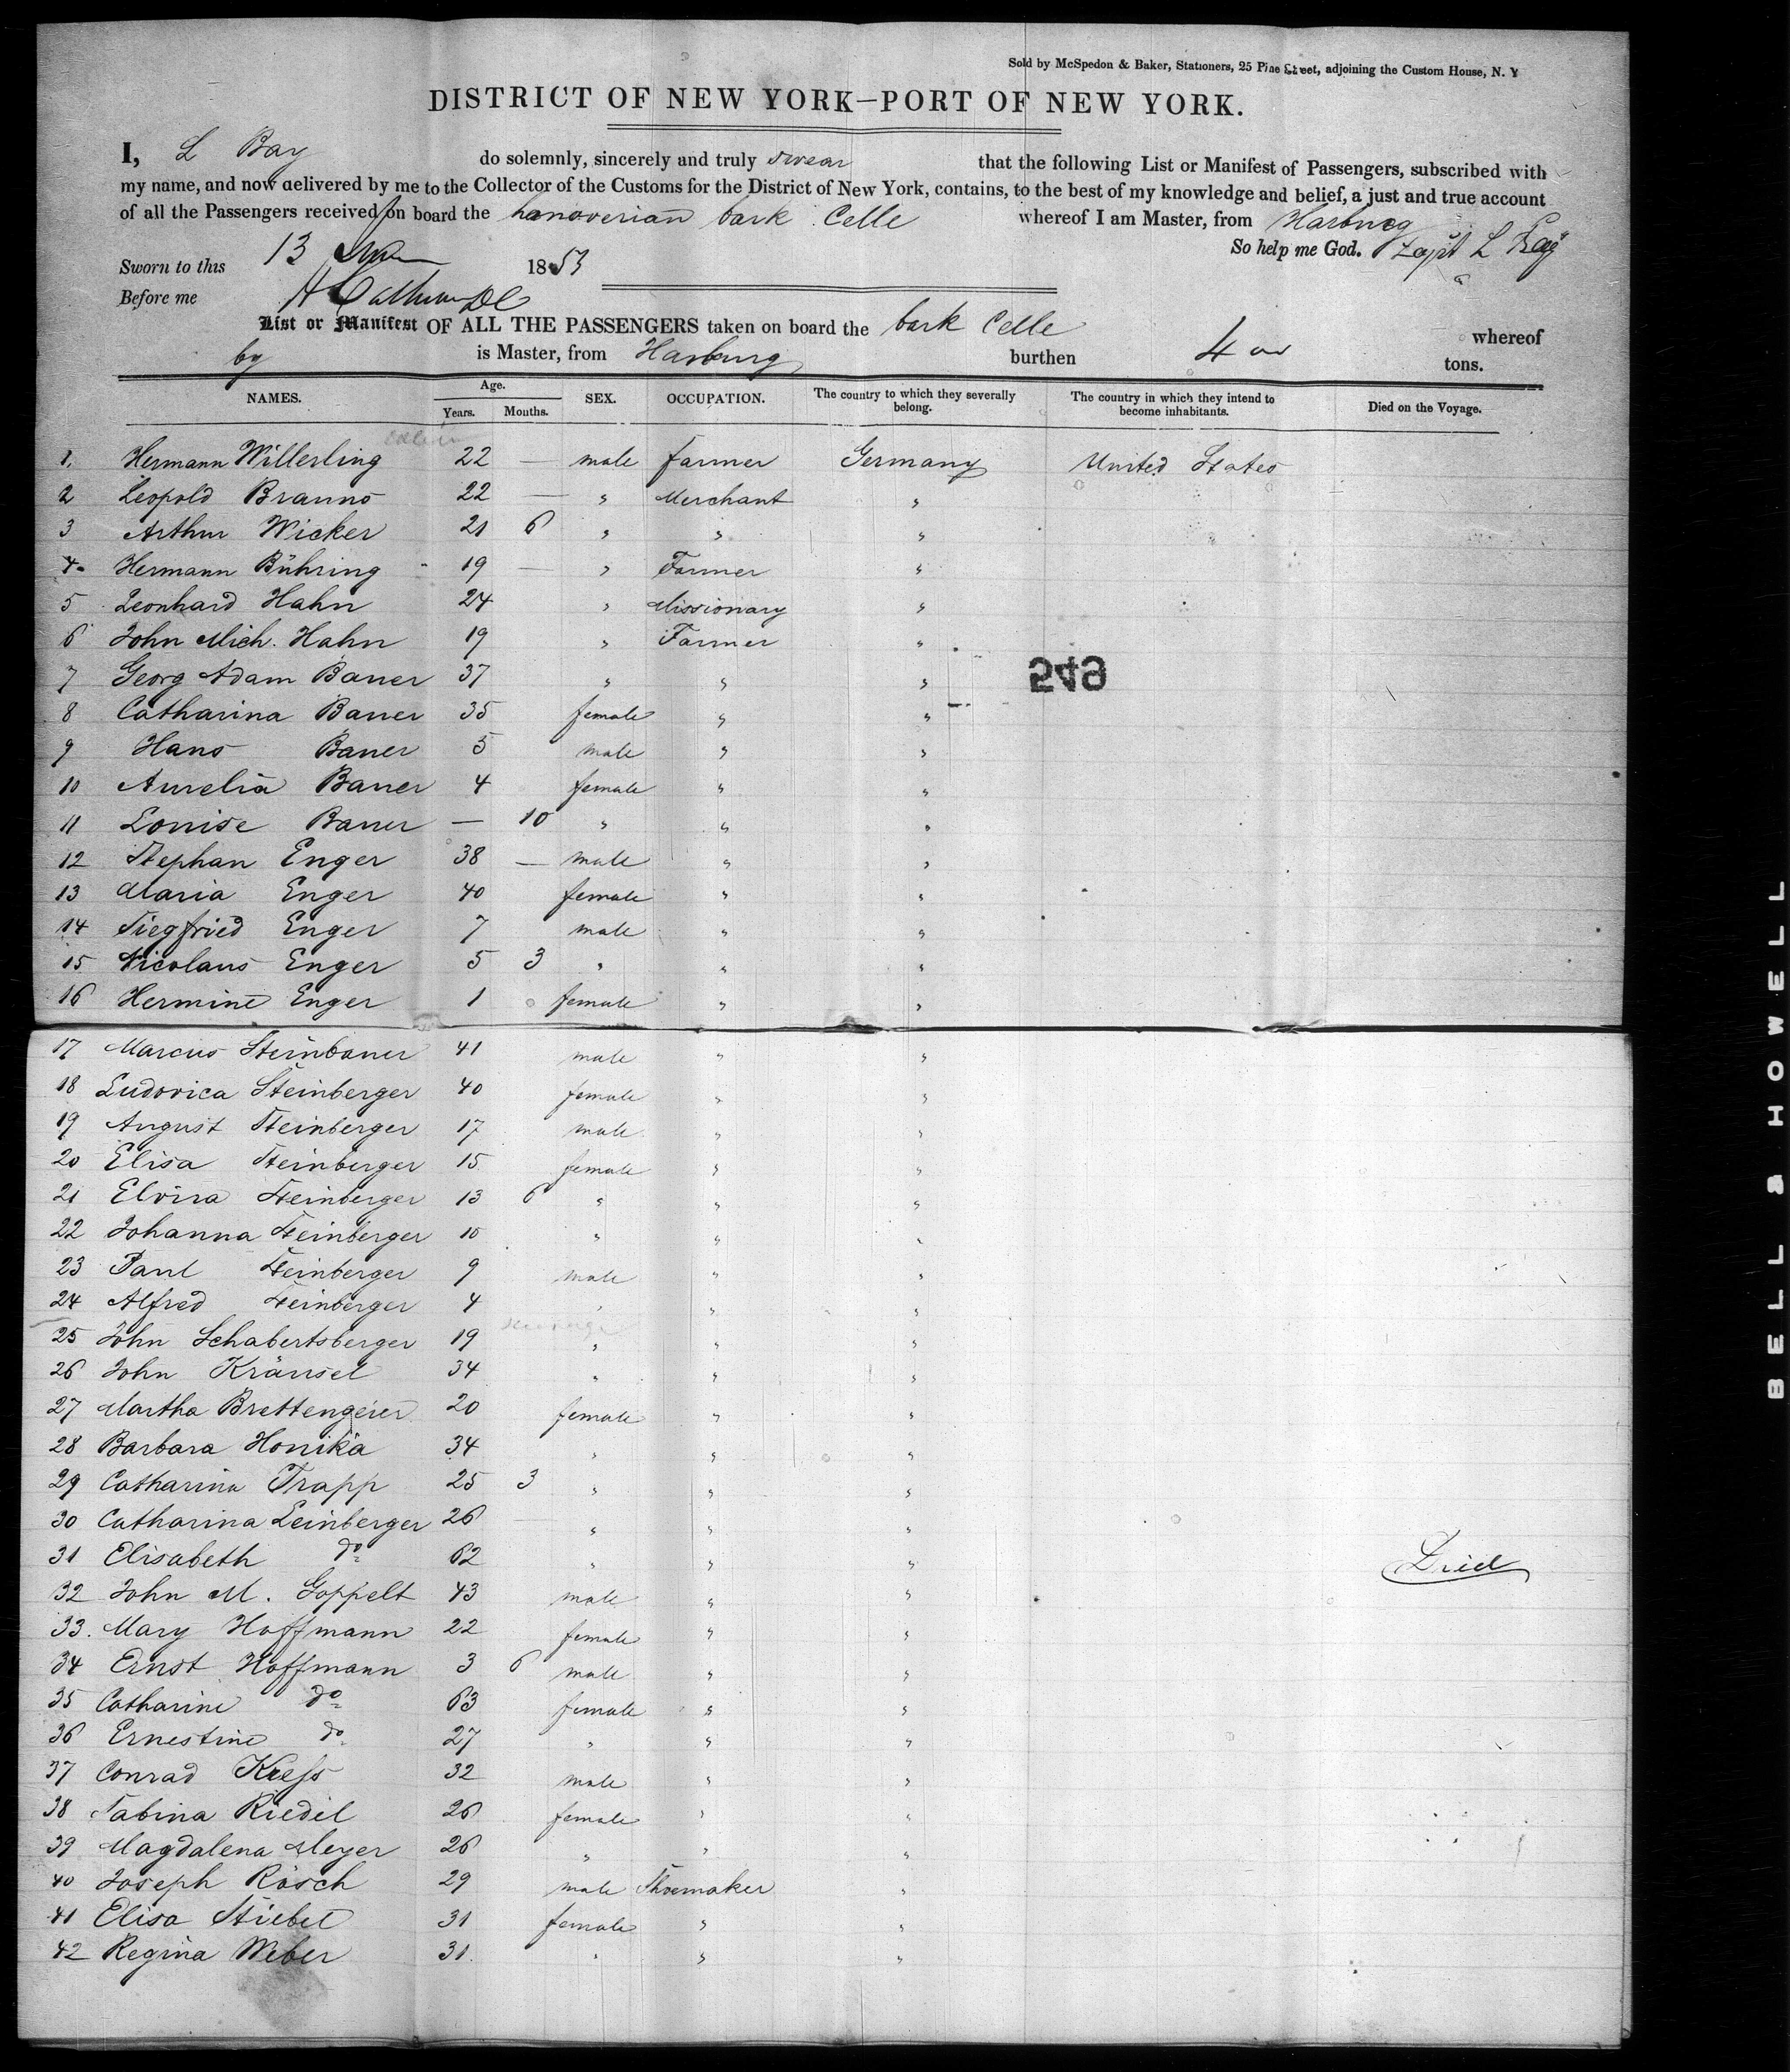 Sold by McSpedon & Baker, Stationers, 25 Pine Street, adjoining the Custom House, N. Y
DISTRICT OF NEW YORK—PORT OF NEW YORK.
I, L Bay do solemnly, sincerely and truly swear that the following List or Manifest of Passengers, subscribed with
my name, and now delivered by me to the Collector of the Customs for the District of New York, contains, to the best of my knowledge and belief, a just and true account
of all the Passengers received on board the hanoverian bark Celle whereof I am Master, from Harburg
So help me God. Capt L Bay
Sworn to this 13 1853
Before me
List or Manifest OF ALL THE PASSENGERS taken on board the bark Celle whereof
by is Master, from Harburg burthen 4 tons.
NAMES. Age. Years. Months. SEX. OCCUPATION. The country to which they severally belong. The country in which they intend to become inhabitants. Died on the Voyage.
1. Hermann Willerling 22 — male farmer Germany United States
2 Leopold Brauns 22 — " Merchant "
3 Arthur Wicker 21 6 " " "
4 Hermann Bühring 19 — " Farmer "
5 Leonhard Hahn 24 " Missionary "
6 John Mich. Hahn 19 " Farmer "
7 Georg Adam Bauer 37 " " "
549
8 Catharina Bauer 35 female " "
9 Hans Bauer 5 male " "
10 Aurelia Bauer 4 female " "
11 Louise Bauer — 10 " " "
12 Stephan Enger 38 — male " "
13 Maria Enger 40 female " "
14 Siegfried Enger 7 male " "
15 Nicolaus Enger 5 3 " " "
16 Hermine Enger 1 female " "
17 Marcus Steinbauer 41 male " "
18 Ludovica Steinberger 40 female " "
19 August Steinberger 17 male " "
20 Elisa Steinberger 15 female " "
21 Elvira Steinberger 13 6 " " "
22 Johanna Steinberger 10 " " "
23 Paul Steinberger 9 male " "
24 Alfred Steinberger 4 " " "
25 John Schabertsberger 19 " " "
26 John Kränsel 34 " " "
27 Martha Brettengeier 20 female " "
28 Barbara Honika 34 " " "
29 Catharina Trapp 25 3 " " "
30 Catharina Leinberger 26 " " "
31 Elisabeth do 62 " " " Died
32 John M. Goppelt 43 male " "
33. Mary Hoffmann 22 female " "
34 Ernst Hoffmann 3 6 male " "
35 Catharine do 63 female " "
36 Ernestine do 27 " " "
37 Conrad Kreſs 32 male " "
38 Sabina Riedel 26 female " "
39 Magdalena Meyer 26 " " "
40 Joseph Rösch 29 male Shoemaker "
41 Elisa Stiebel 31 female " "
42 Regina Weber 31 " " "
BELL & HOWELL